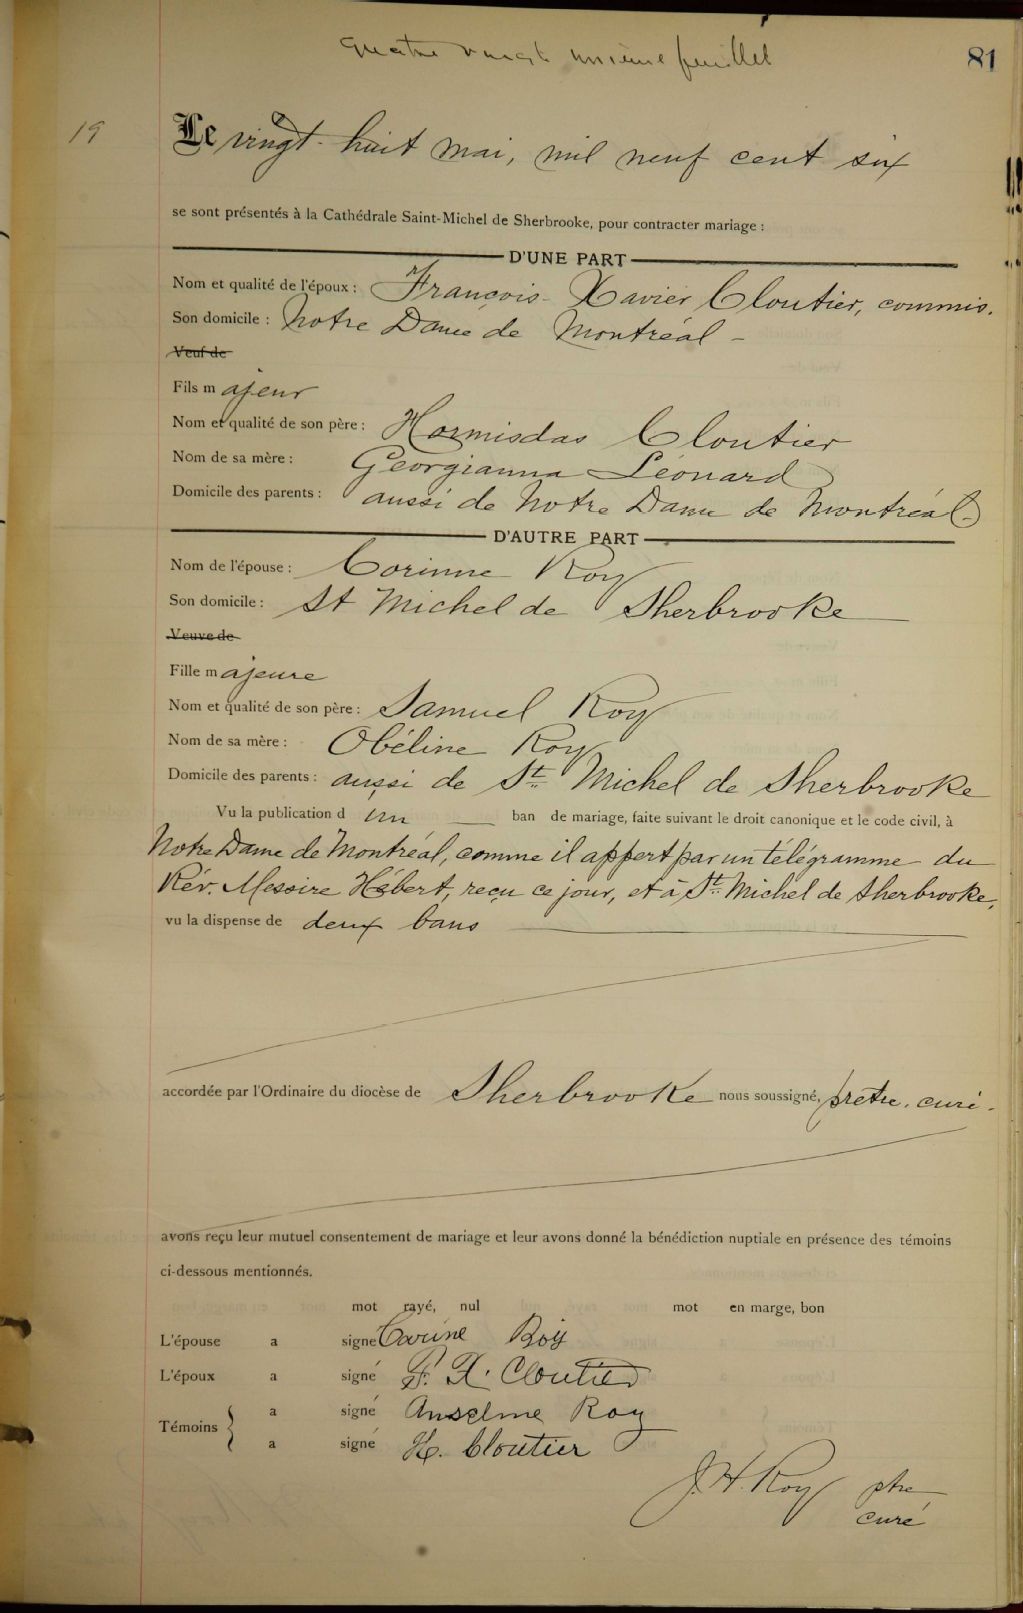 quatre vingt unième feuillet
81
19
Le vingt-huit mai, mil neuf cent six
se sont présentés à la Cathédrale Saint-Michel de Sherbrooke, pour contracter mariage :
D'UNE PART
Nom et qualité de l'époux : François-Xavier Cloutier, commis.
Son domicile : Notre Dame de Montréal -
Veuf de
Fils majeur
Nom et qualité de son père : Hormisdas Cloutier
Nom de sa mère : Georgianna Léonard
Domicile des parents : aussi de Notre Dame de Montréal
D'AUTRE PART
Nom de l'épouse : Corinne Roy
Son domicile : St Michel de Sherbrooke
Veuve de
Fille majeure
Nom et qualité de son père : Samuel Roy
Nom de sa mère : Obéline Roy
Domicile des parents : aussi de St. Michel de Sherbrooke
Vu la publication d'un ban de mariage, faite suivant le droit canonique et le code civil, à
Notre Dame de Montréal, comme il appert par un télégramme du
Rév. Messire Hébert, reçu ce jour, et à St. Michel de Sherbrooke,
vu la dispense de deux bans
accordée par l'Ordinaire du diocèse de Sherbrooke nous soussigné, prêtre, curé.
avons reçu leur mutuel consentement de mariage et leur avons donné la bénédiction nuptiale en présence des témoins
ci-dessous mentionnés.
mot rayé, nul mot en marge, bon
L'épouse a signé Corine Roy
L'époux a signé F. X. Cloutier
Témoins { a signé Anselme Roy
a signé H. Cloutier
J. H. Roy ptre
curé